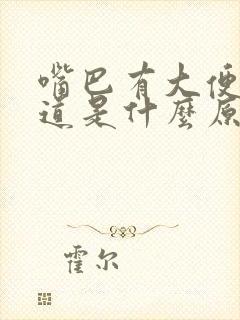 嘴巴有大便
道是什麼原
霍尔